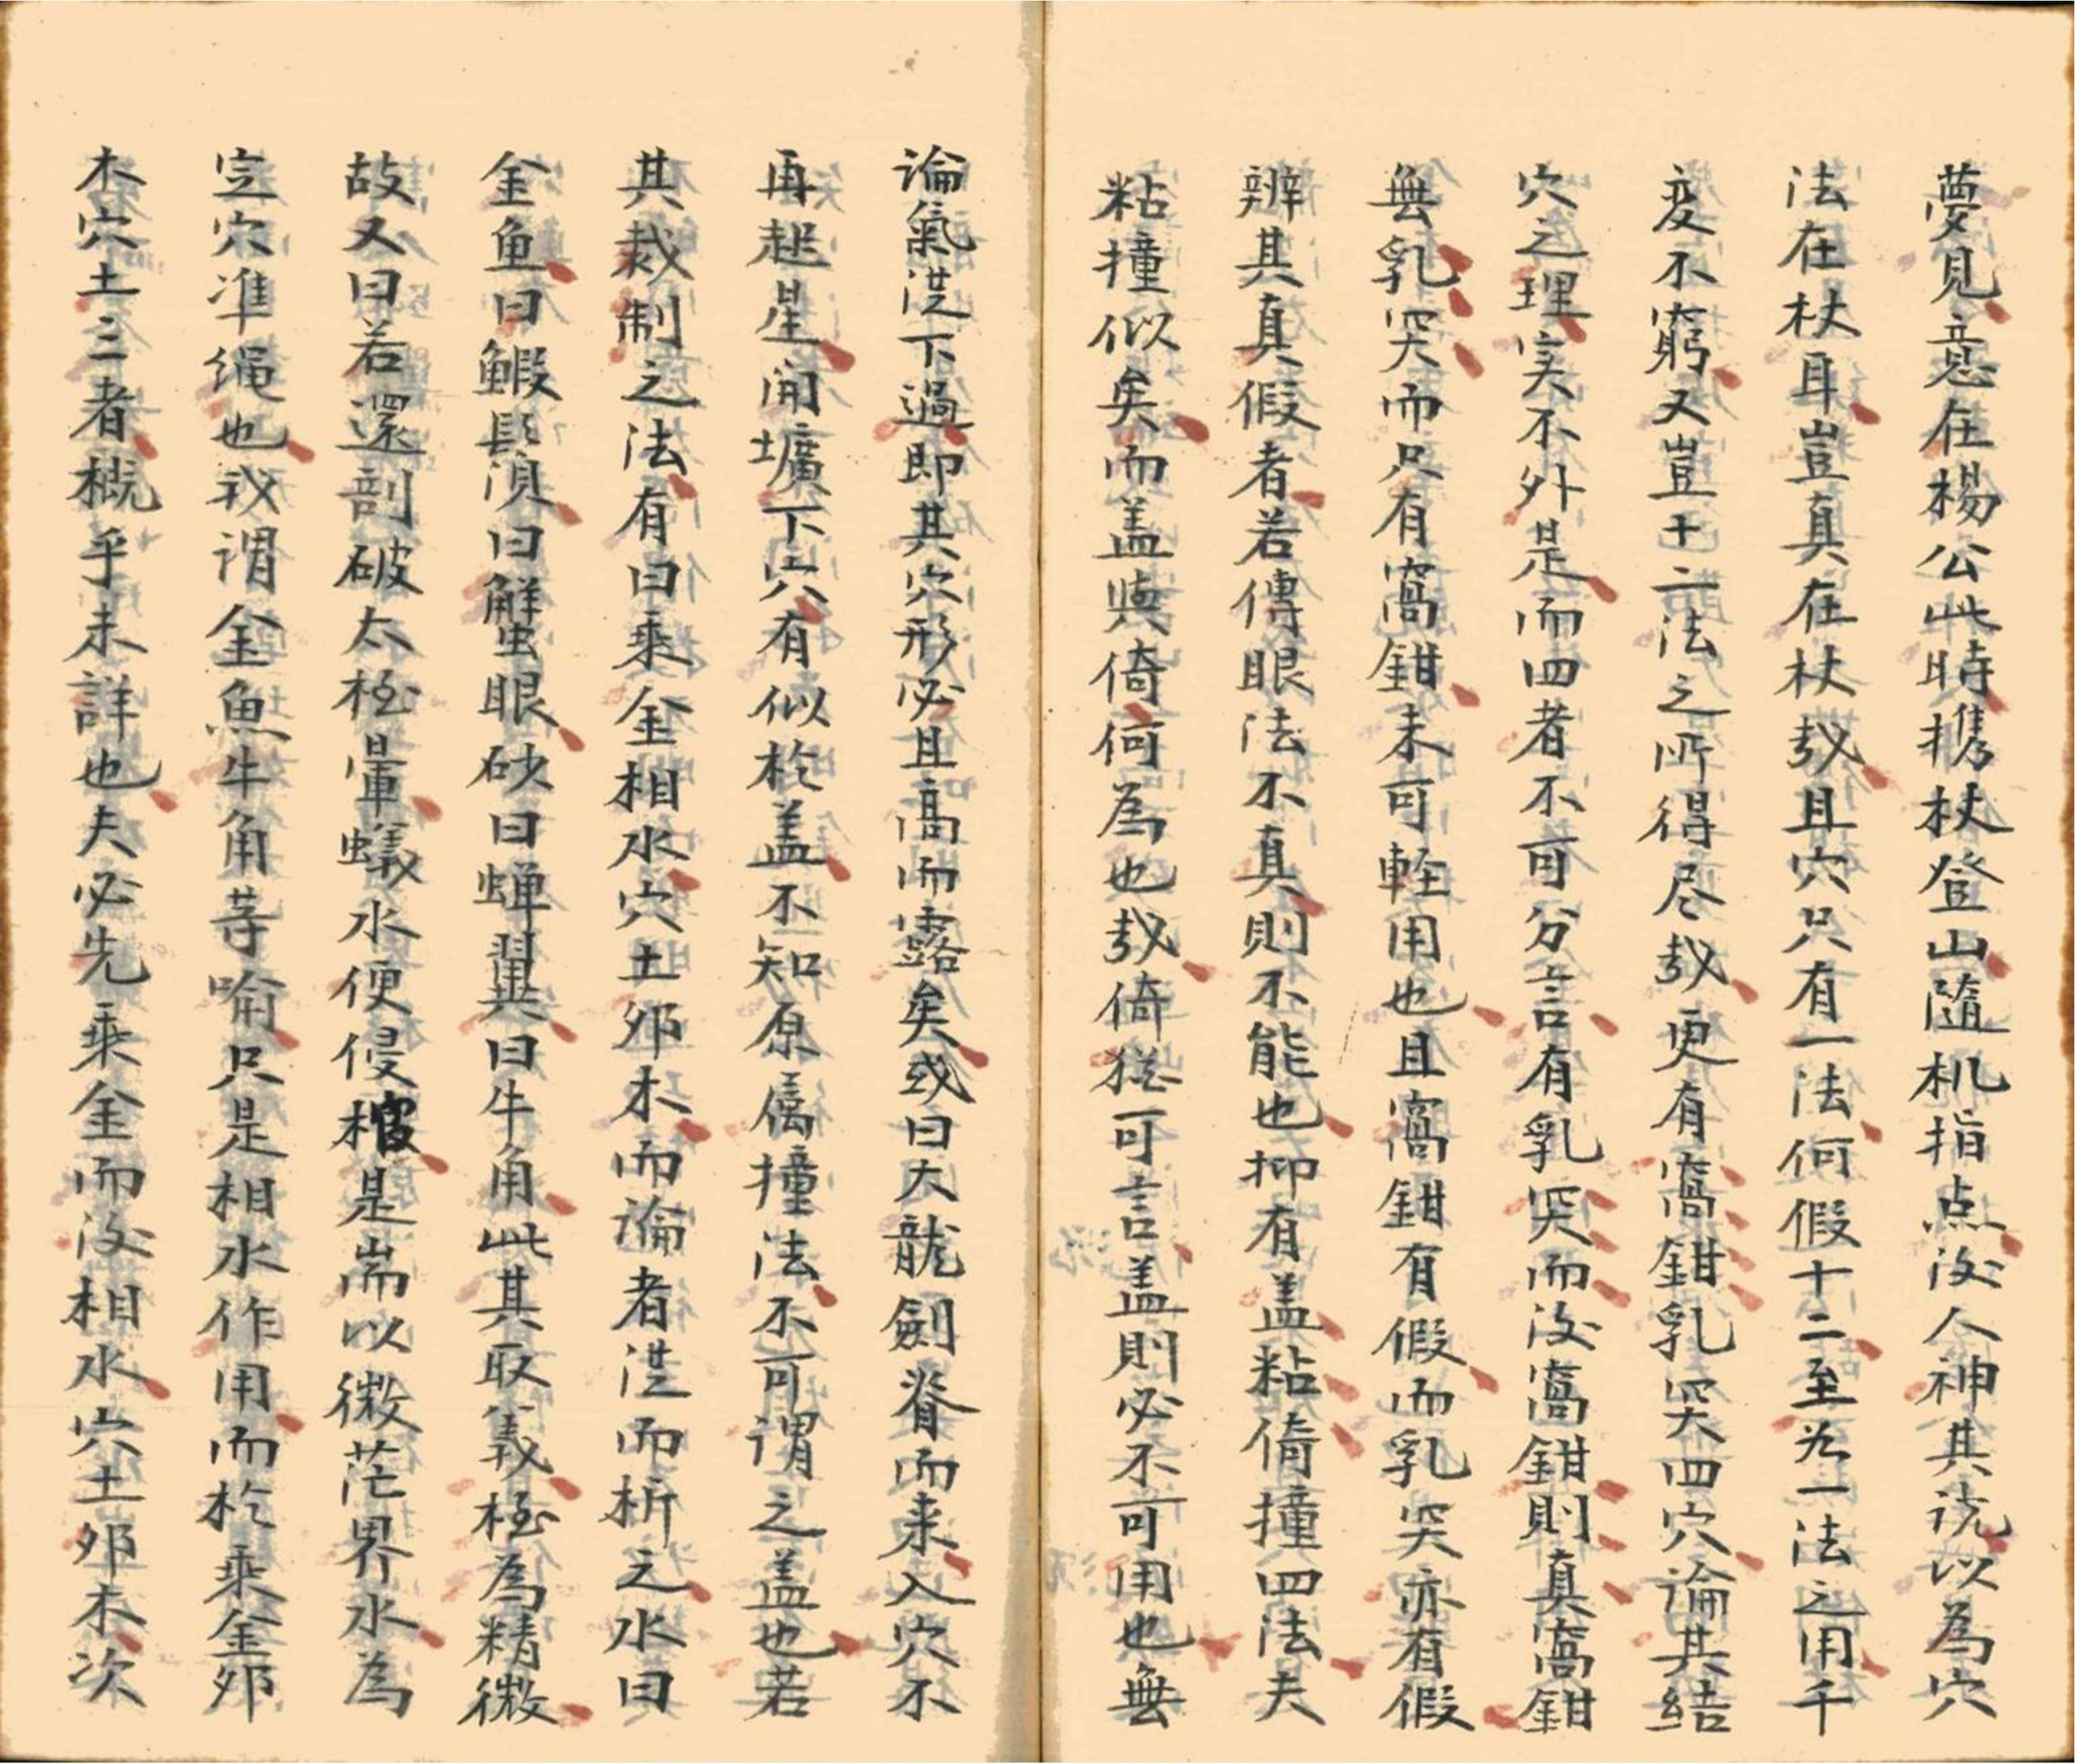 夢見意在楊公此時携杖登山隨机指点後人神其説以為穴
法在杖耳豈真在杖㢤且穴只有一法何假十二至為一法之用千
変不窮又豈十二法之所得尽㢤更有窩鉗乳突四穴論其結
穴之理実不外是而四者不可分言有乳突而後窩鉗則真窩鉗
無乳突而只有窩鉗未可軽用也且窩鉗有假而乳突亦有假
辨其真假者若傳眼法不真則不能也抑有盖粘倚撞四法夫
粘撞似矣而盖與倚何為也㢤倚猶可言盖則必不可用也無
論氣従下過即其穴形必且高而露矣或曰大龍劍脊而来入穴不
再起星開壙下穴有似於盖不知原属撞法不可謂之盖也若
其裁制之法有曰乘金相水穴土邜木而論者従而析之水曰
金魚曰鰕鬚湏曰蟹眼砂曰蝉翼曰牛角此其取義極為精微
故又曰若還剖破太極暈蟻水便侵棺是耑以微茫界水為
定穴準繩也我謂金魚牛角䓁喻只是相水作用而於乘金邜
木穴土三者概乎未詳也夫必先乘金而後相水穴土邜木次